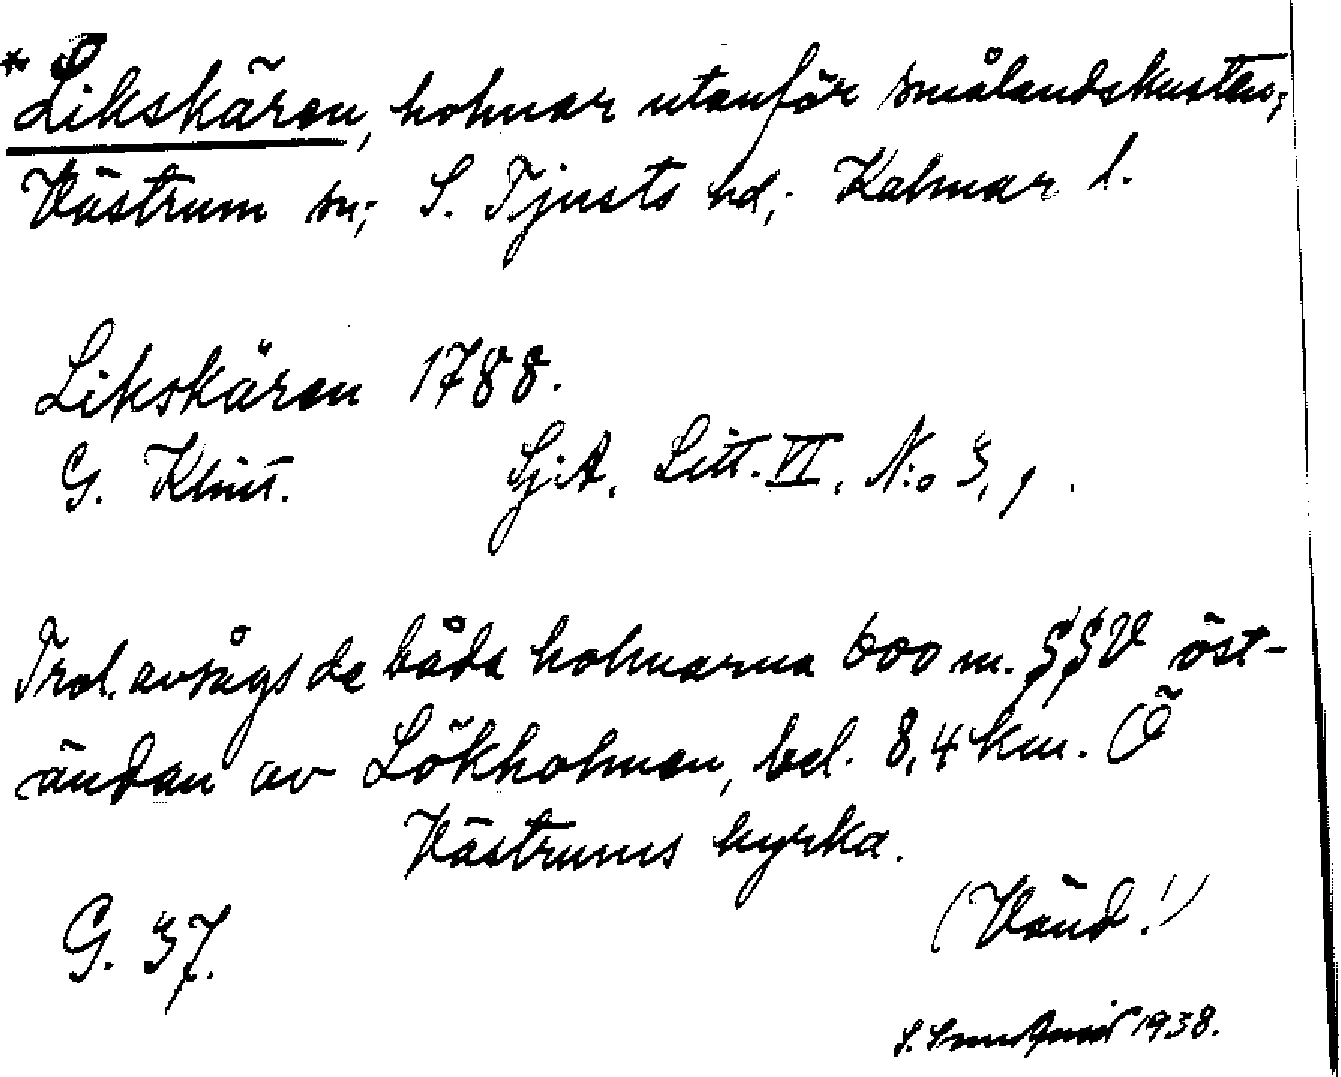 * Likskären, holmar utanför smålandskusten;
Västrum sn; S. Tjusts hd; Kalmar l.
Likskären 1788.
G. Klint. SjA. Litt. VI, N:o 3, 1.
Trol. avsågs de båda holmarna 600 m. SSV öst-
ändan av Lökholmen, bel. 8,4 km. Ö
Västrums kyrka.
(Vänd!)
G. 37.
S. 1938.